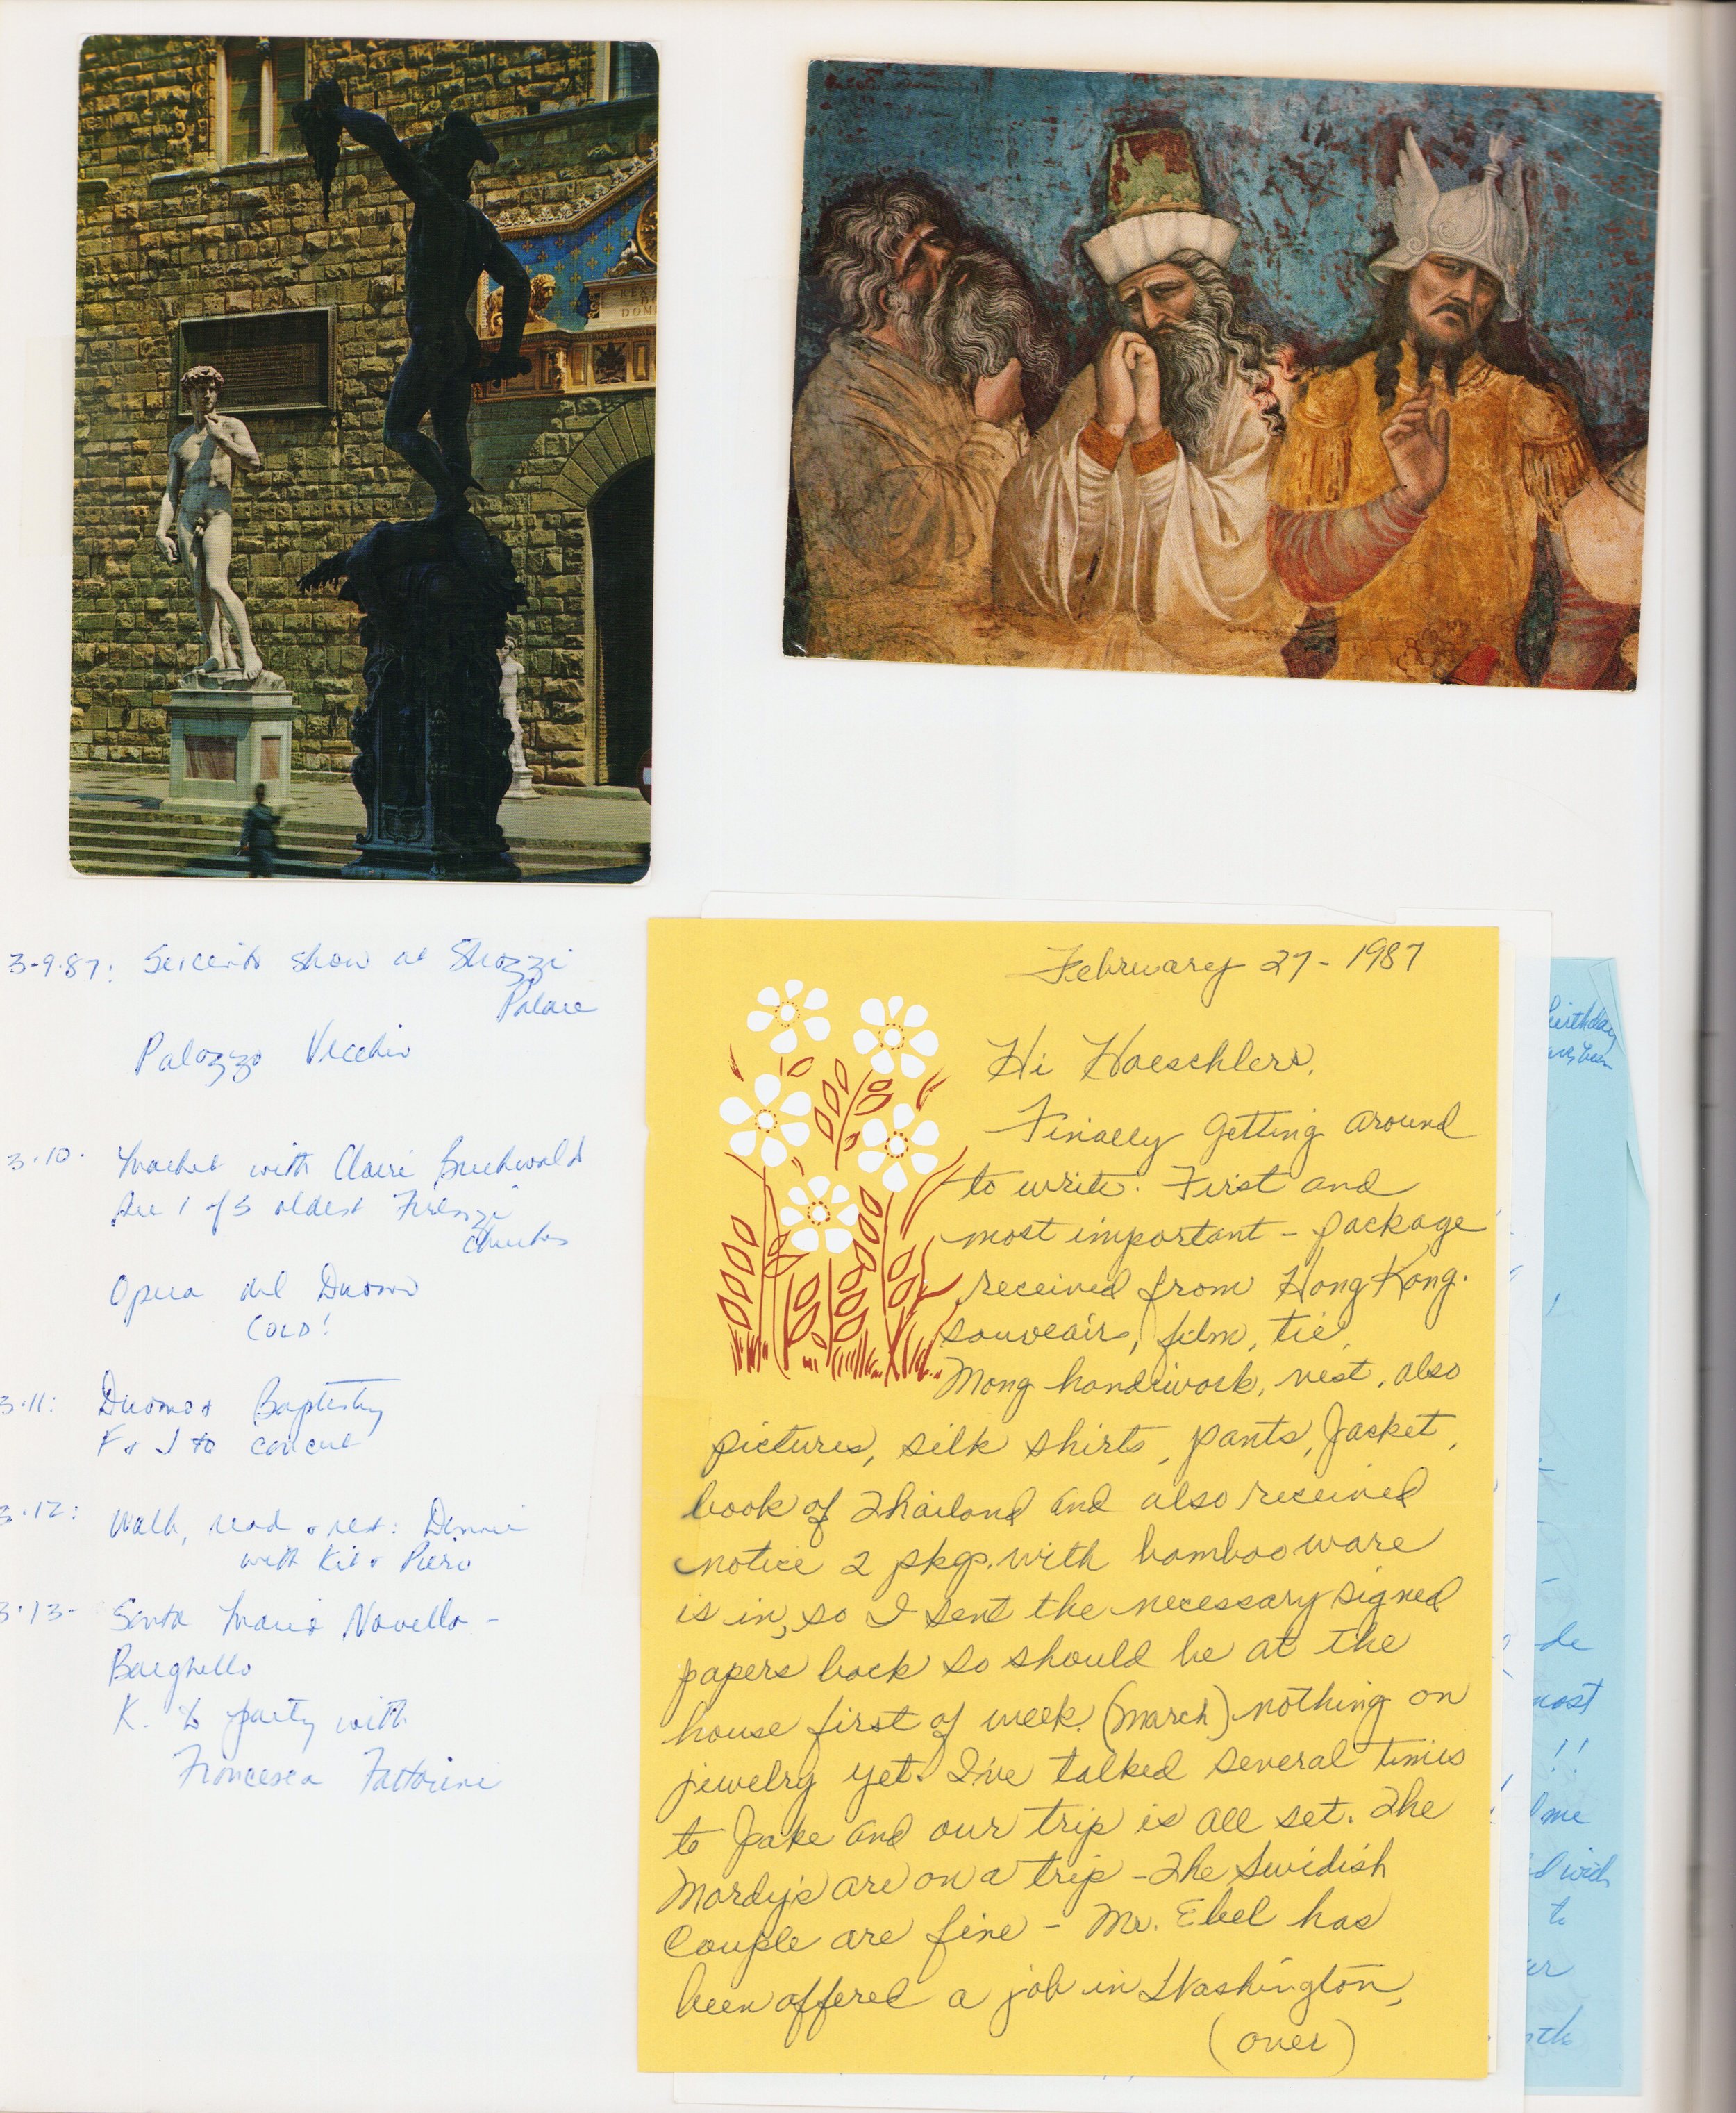 3-9-87: Seicento show at Strozzi
Palace
Palazzo Vecchio
3.10. Market with Claire Buchwald
See 1 of 3 oldest Firenze
Churches
Opera del Duomo
COLD!
3.11: Duomo & Baptistry
F & J to concert
3.12: Walk, read & rest: Dinner
with Kit & Piero
3.13- Santa Maria Novella -
Barghello
K. to party with
Francesca Fattorini
February 27 - 1987
Hi Haeschlers,
Finally getting around
to write. First and
most important - package
received from Hong Kong.
souveairs, film, tie,
Mong handiwork, vest, also
pictures, silk shirts, pants, Jacket,
book of Thailand and also received
notice 2 pkgs. with bamboo ware
is in, so I sent the necessary signed
papers back so should be at the
house first of week. (March) nothing on
jewelry yet. I've talked several times
to Jake and our trip is all set. The
Mardy's are on a trip - The Swidish
Couple are fine - Mr. Ebel has
been offered a job in Washington,
(over)
birthday
de
most
!!
me
with
to